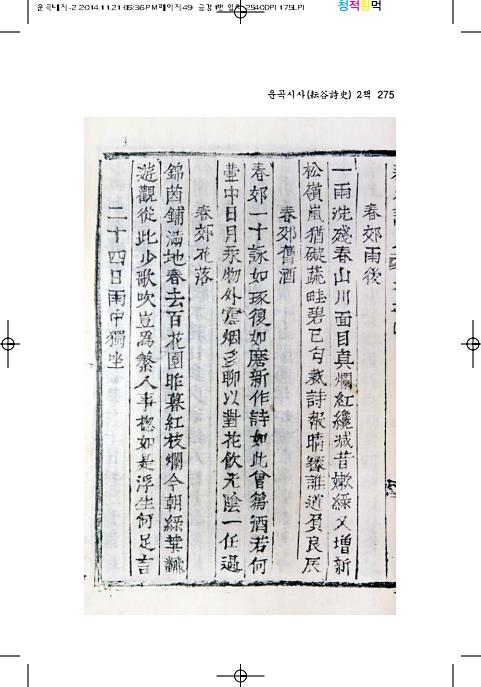 운곡내지-2 2014.11.21 05:36 PM 페이지49
2540DPI 175LPI
청적황먹
운곡시사(耘谷詩史) 2책 275
春郊雨後
一雨洗殘春山川面目真爛紅纔減昔嫩綠又增新
松嶺嵐猶礙蔬畦碧已勻裁詩報晴 誰道負良辰
春郊置酒
春郊一十詠如琢復如磨新作詩如此曾篘酒若何
壺中日月永物外 烟多聊以對花飲光陰一任過
春郊花落
錦茵鋪滿地春去百花園昨暮紅枝爛今朝綠葉飜
遊觀從此少歌吹豈爲繁人事摠如是浮生何足言
二十四日雨中獨坐